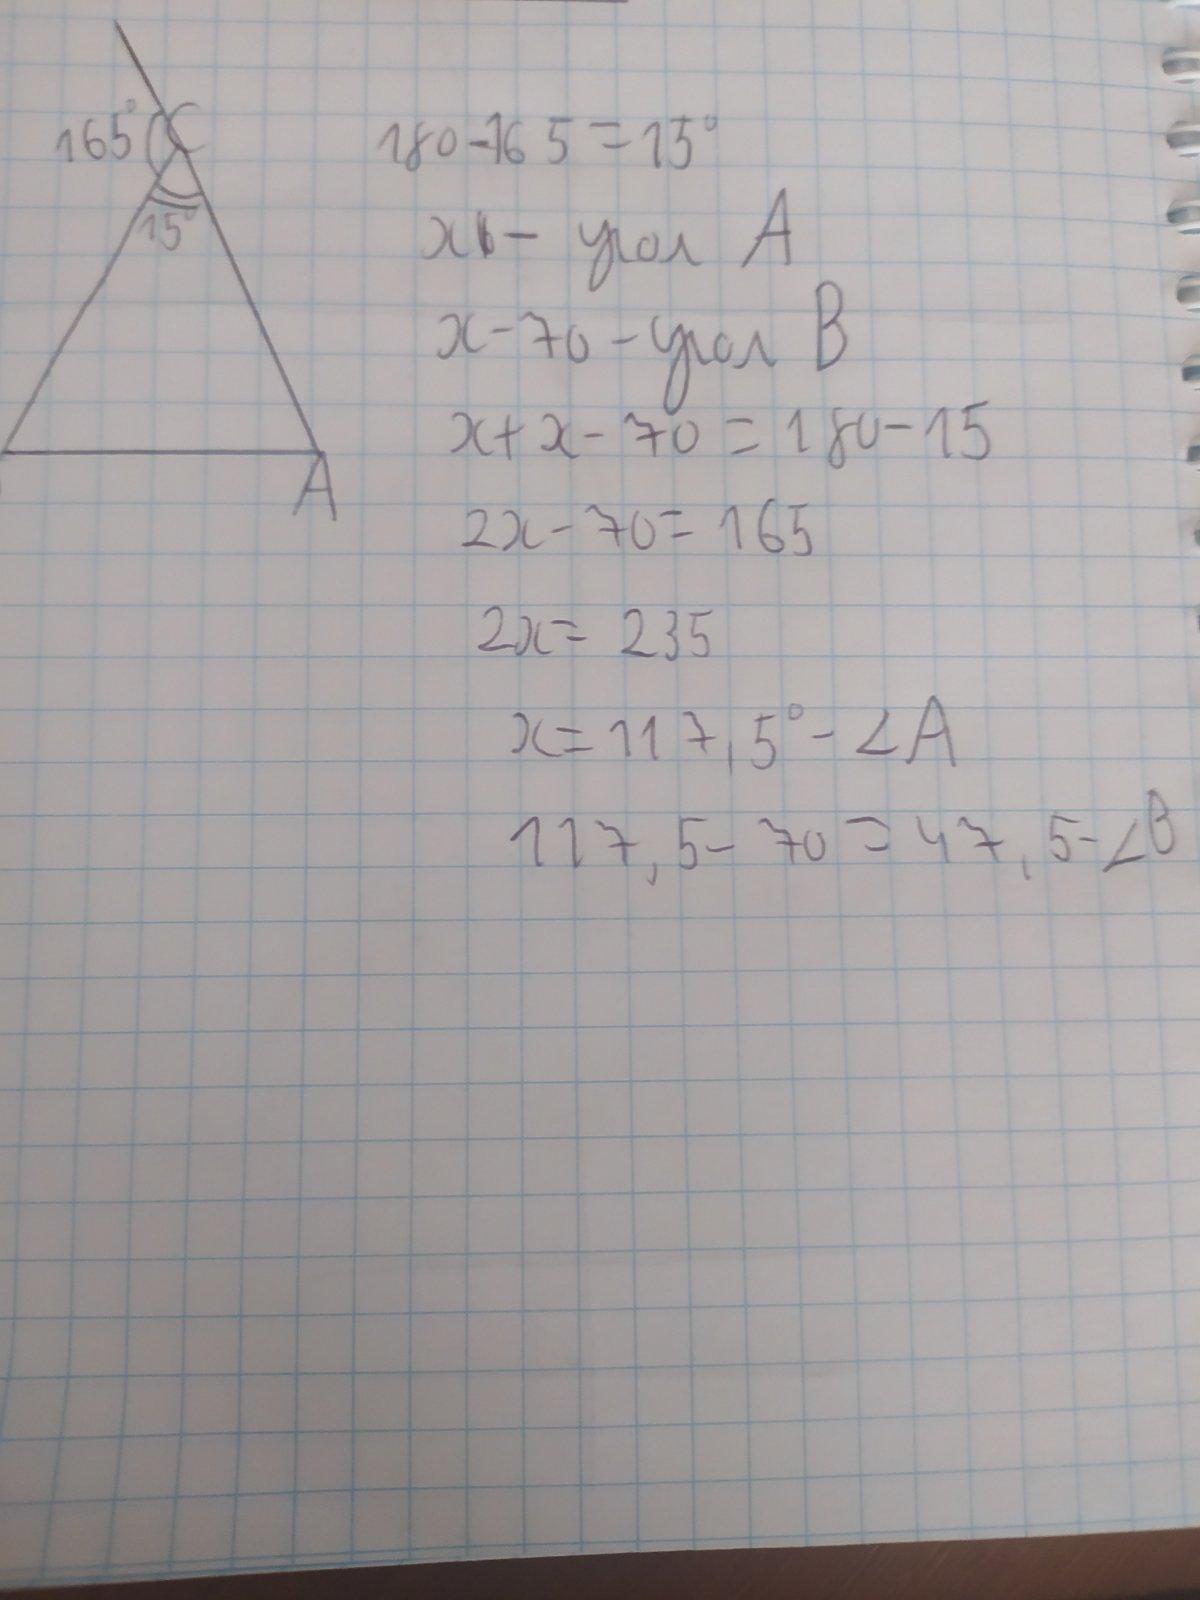 165° C
15°
A
180-165=15°
x - угол A
x-70-угол B
x+x-70=180-15
2x-70=165
2x=235
x=117,5°-∠A
117,5-70=47,5-∠B